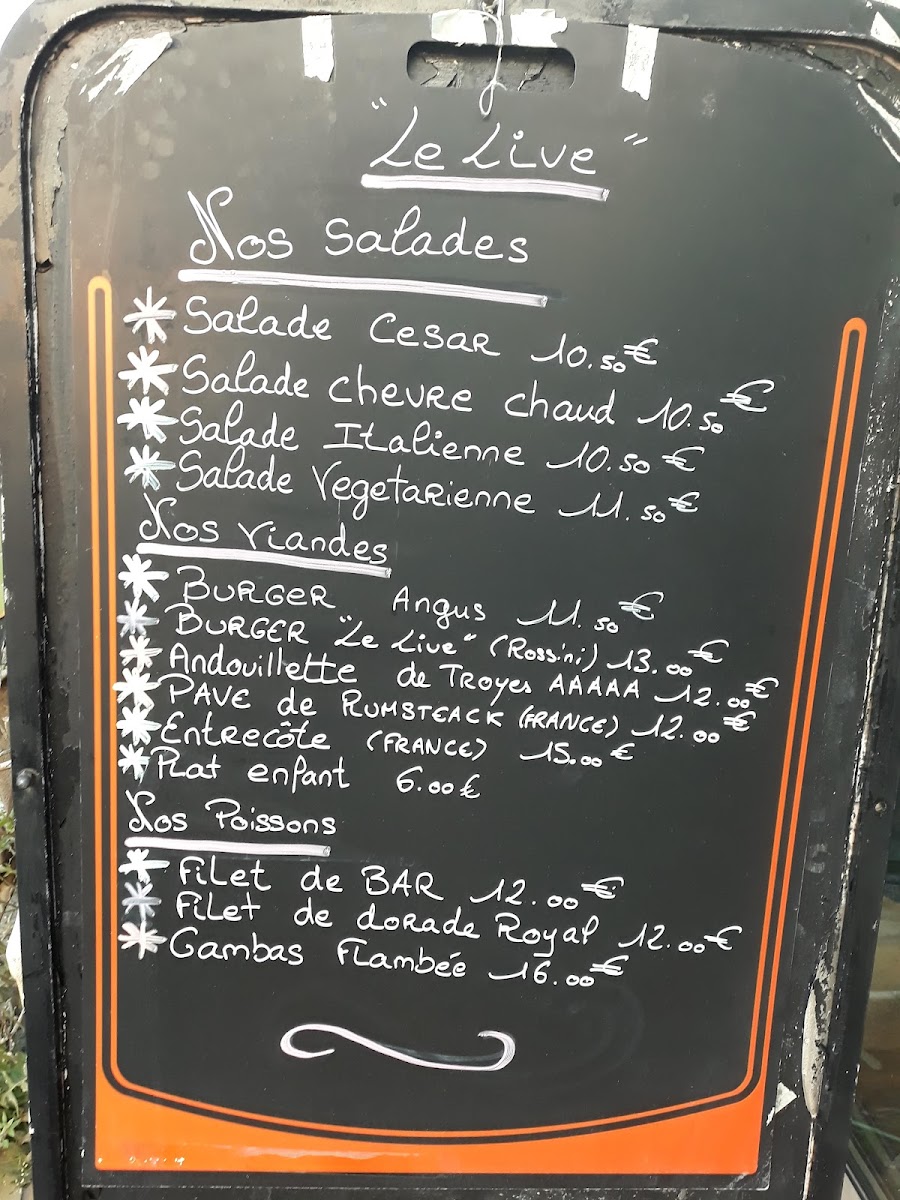 "Le Live"
Nos Salades
* Salade Cesar 10.50€
* Salade chevre chaud 10.50€
* Salade Italienne 10.50€
* Salade Vegetarienne 11.50€
Nos Viandes
* BURGER Angus 11.50€
* BURGER "Le Live" (Rossini) 13.00€
* Andouillette de Troyes AAAAA 12.00€
* PAVE de RUMSTEACK (FRANCE) 12.00€
* Entrecôte (FRANCE) 15.00€
* Plat enfant 6.00€
Nos Poissons
* Filet de BAR 12.00€
* Filet de dorade Royal 12.00€
* Gambas Flambée 16.00€